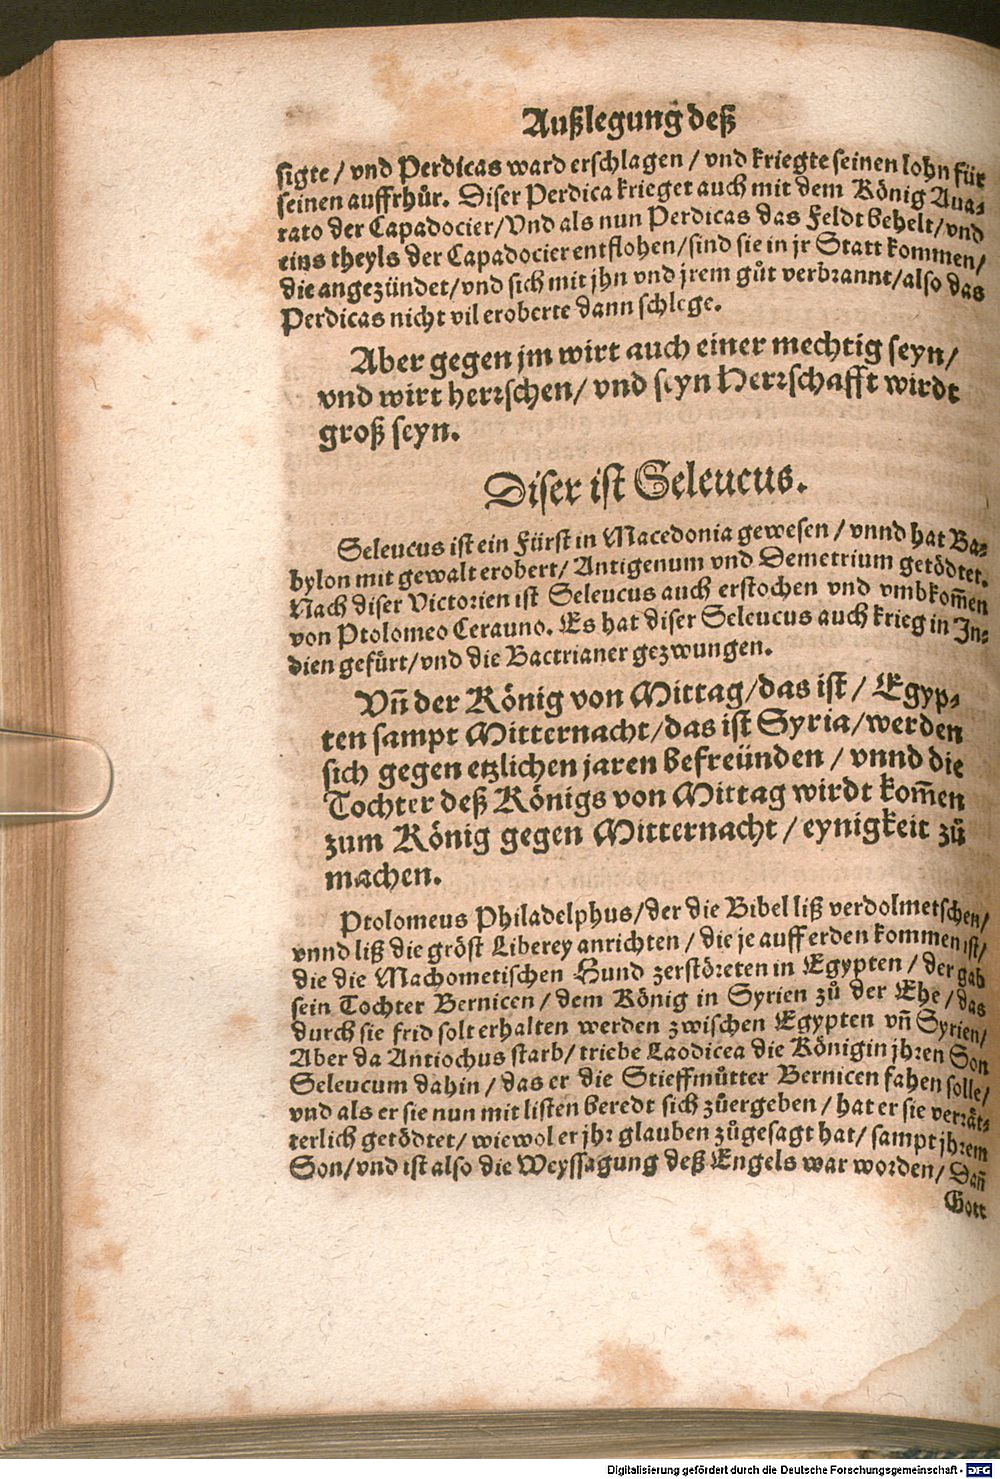 Außlegung deß
sigte / vnd Perdicas ward erschlagen / vnd kriegte seinen lohn für
seinen auffrhůr. Diser Perdica krieget auch mit dem König Aua⸗
rato der Capadocier/Vnd als nun Perdicas das Feldt behelt/vnd
eins theyls der Capadocier entflohen/sind sie in jr Statt kommen/
die angezündet/vnd sich mit jhn vnd jrem gůt verbrannt/also das
Perdicas nicht vil eroberte dann schlege.
Aber gegen jm wirt auch einer mechtig seyn/
vnd wirt herrschen/ vnd seyn Herrschafft wirdt
groß seyn.
Diser ist Seleucus.
Seleucus ist ein Fürst in Macedonia gewesen / vnnd hat Ba⸗
bylon mit gewalt erobert/ Antigenum vnd Demetrium getödtet.
Nach diser Victorien ist Seleucus auch erstochen vnd vmbkom̃en
von Ptolomeo Cerauno. Es hat diser Seleucus auch krieg in In⸗
dien gefürt/vnd die Bactrianer gezwungen.
Vñ der König von Mittag/das ist/ Egyp⸗
ten sampt Mitternacht/das ist Syria/werden
sich gegen etzlichen jaren befreünden / vnnd die
Tochter deß Königs von Mittag wirdt kom̃en
zum König gegen Mitternacht / eynigkeit zů
machen.
Ptolomeus Philadelphus/der die Bibel liß verdolmetschen/
vnnd liß die gröst Liberey anrichten / die je auff erden kommen ist/
die die Machometischen Hund zerstöreten in Egypten / der gab
sein Tochter Bernicen / dem König in Syrien zů der Ehe / das
durch sie frid solt erhalten werden zwischen Egypten vñ Syrien/
Aber da Antiochus starb/ triebe Laodicea die Königin jhren Son
Seleucum dahin / das er die Stieffmůtter Bernicen fahen solle/
vnd als er sie nun mit listen beredt sich zůergeben / hat er sie verrät⸗
terlich getödtet/ wiewol er jhr glauben zůgesagt hat/ sampt jhrem
Son/vnd ist also die Weyssagung deß Engels war worden/ Dañ
Gott
Digitalisierung gefördert durch die Deutsche Forschungsgemeinschaft - DFG